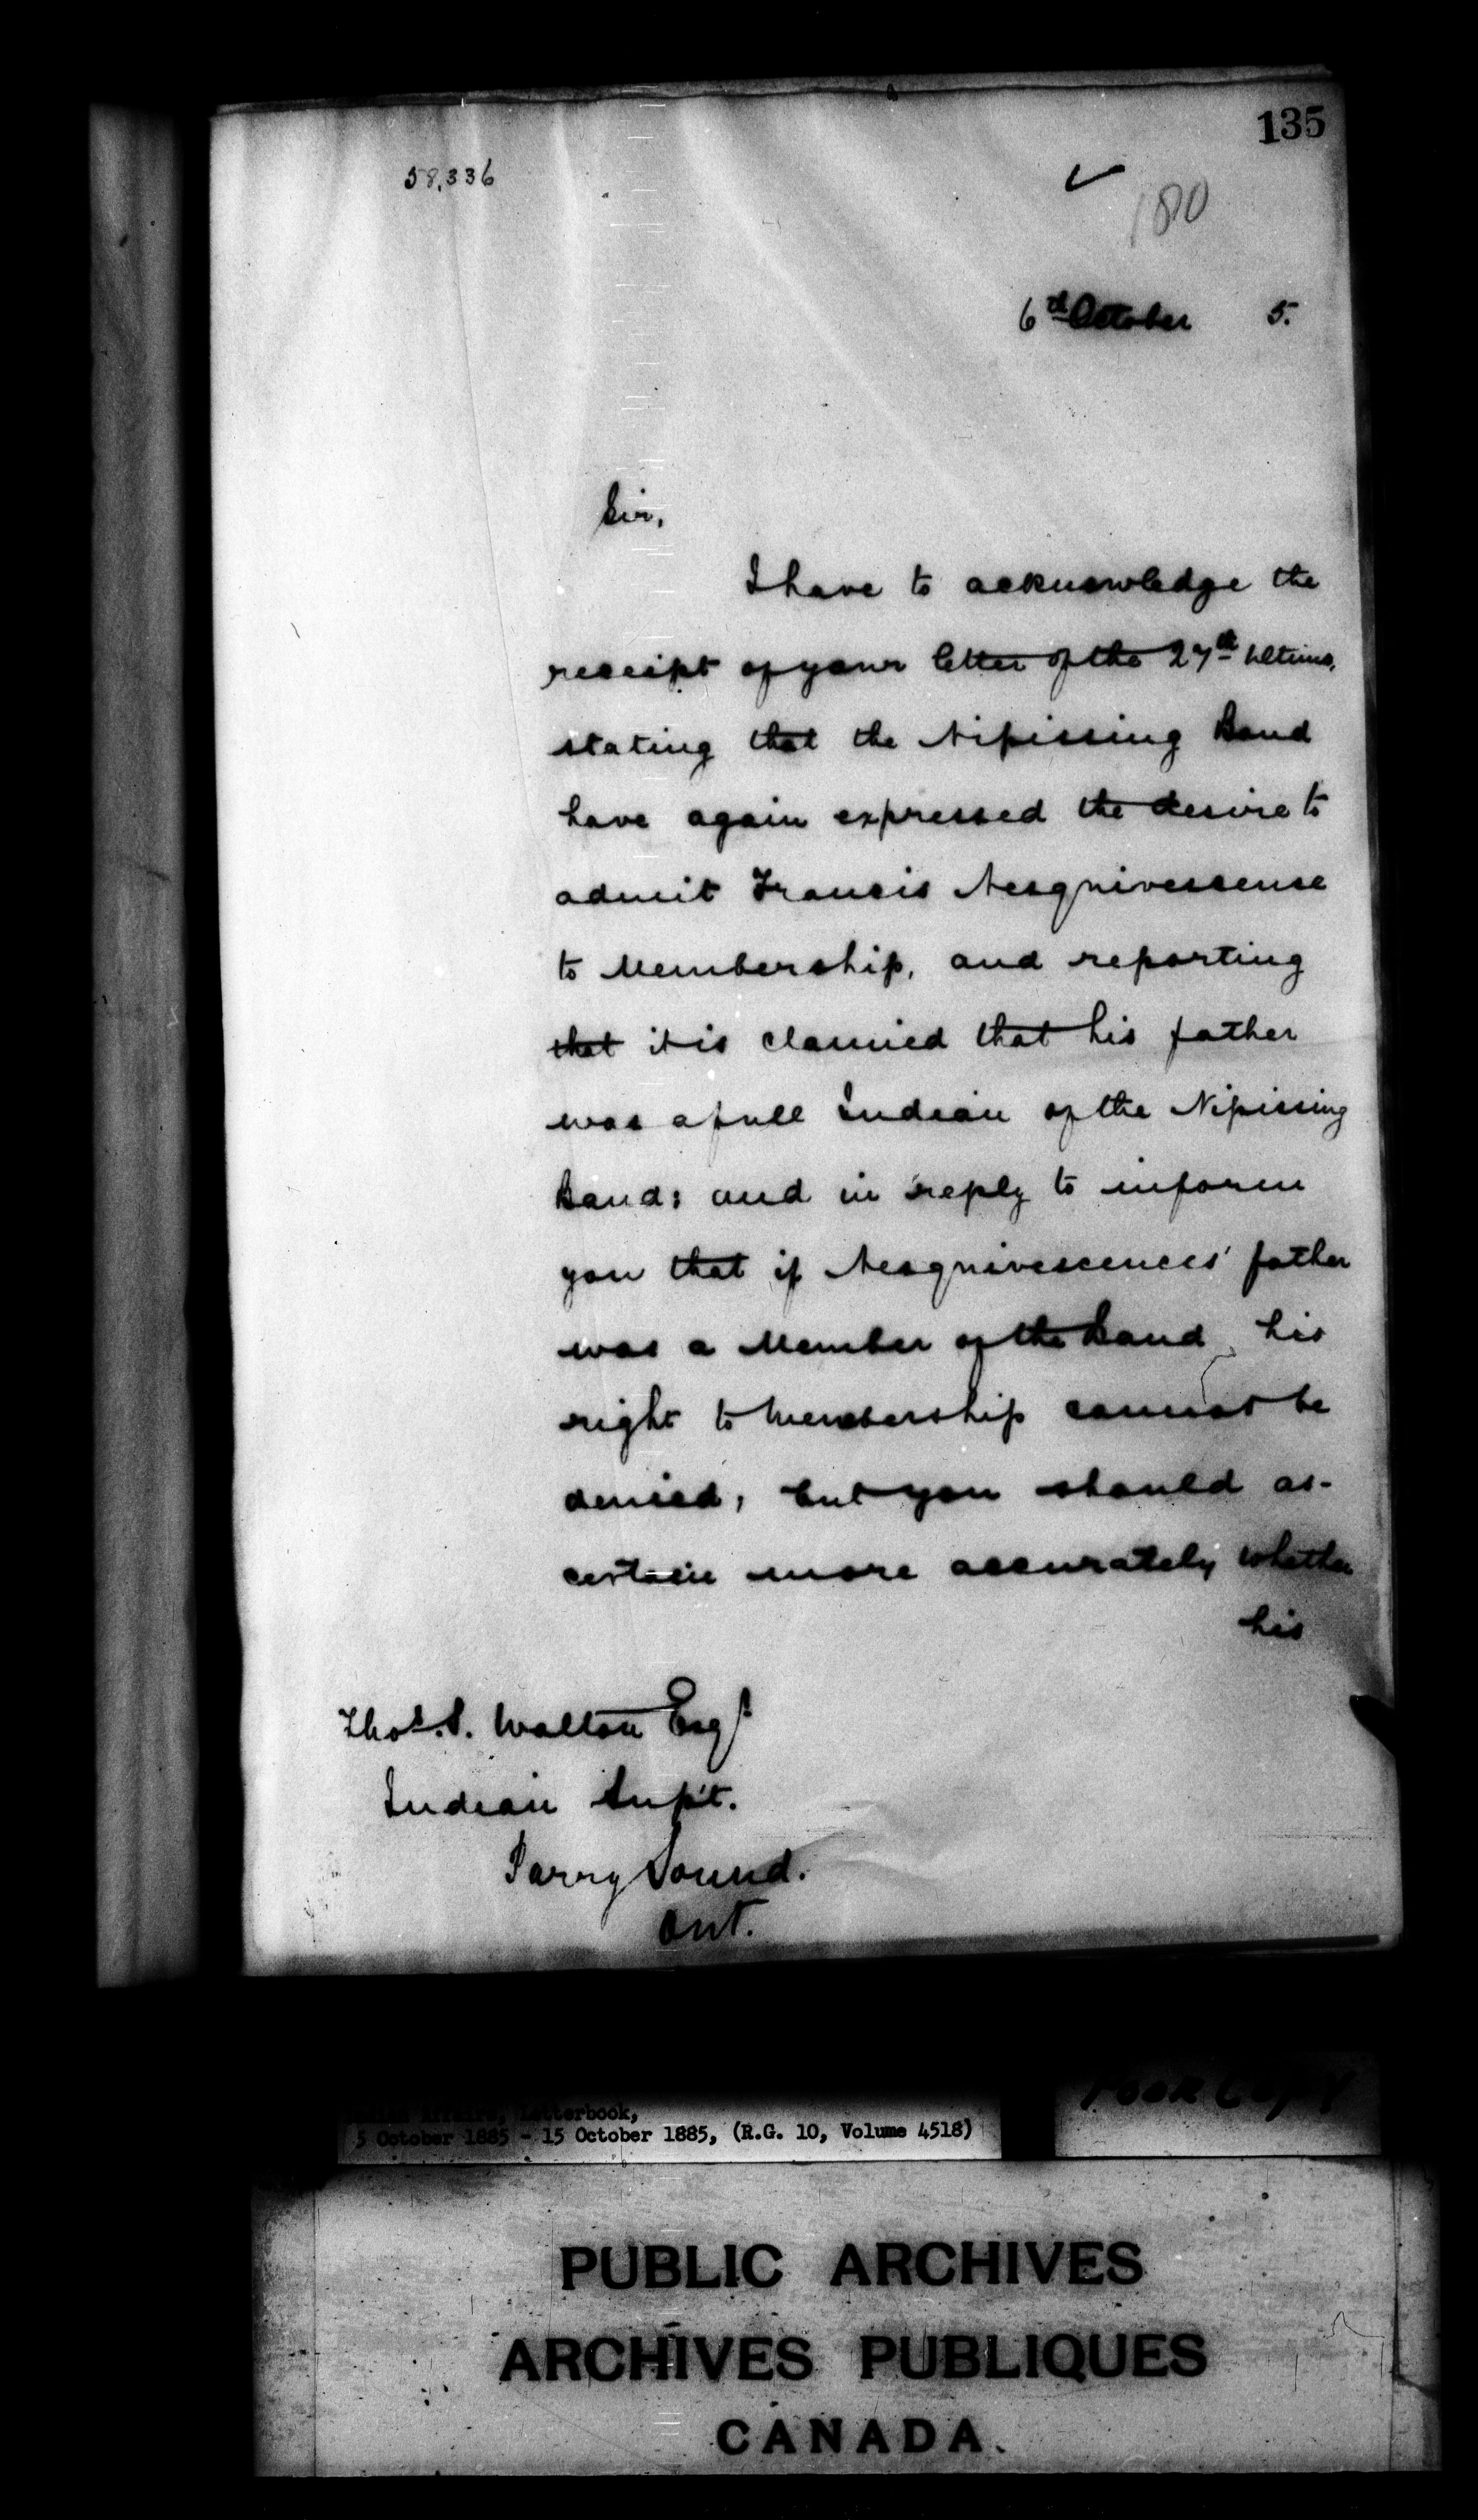 135
58,336
180
6th October 5.
Sir,
I have to acknowledge the
receipt of your letter of the 27th Ultimo,
stating that the Nipissing Band
have again expressed the desire to
admit Francis Nesquivessense
to Membership, and reporting
that it is claimed that his father
was a full Indian of the Nipissing
Band; and in reply to inform
you that if Nesquivescences' father
was a Member of the Band, his
right to Membership cannot be
denied; but you should as-
certain more accurately whether
his
Thos. S. Walton Esqr
Indian Supt.
Parry Sound.
Ont.
Affairs, Letterbook,
5 October 1885 - 15 October 1885, (R.G. 10, Volume 4518)
Poor Copy
PUBLIC ARCHIVES
ARCHIVES PUBLIQUES
CANADA